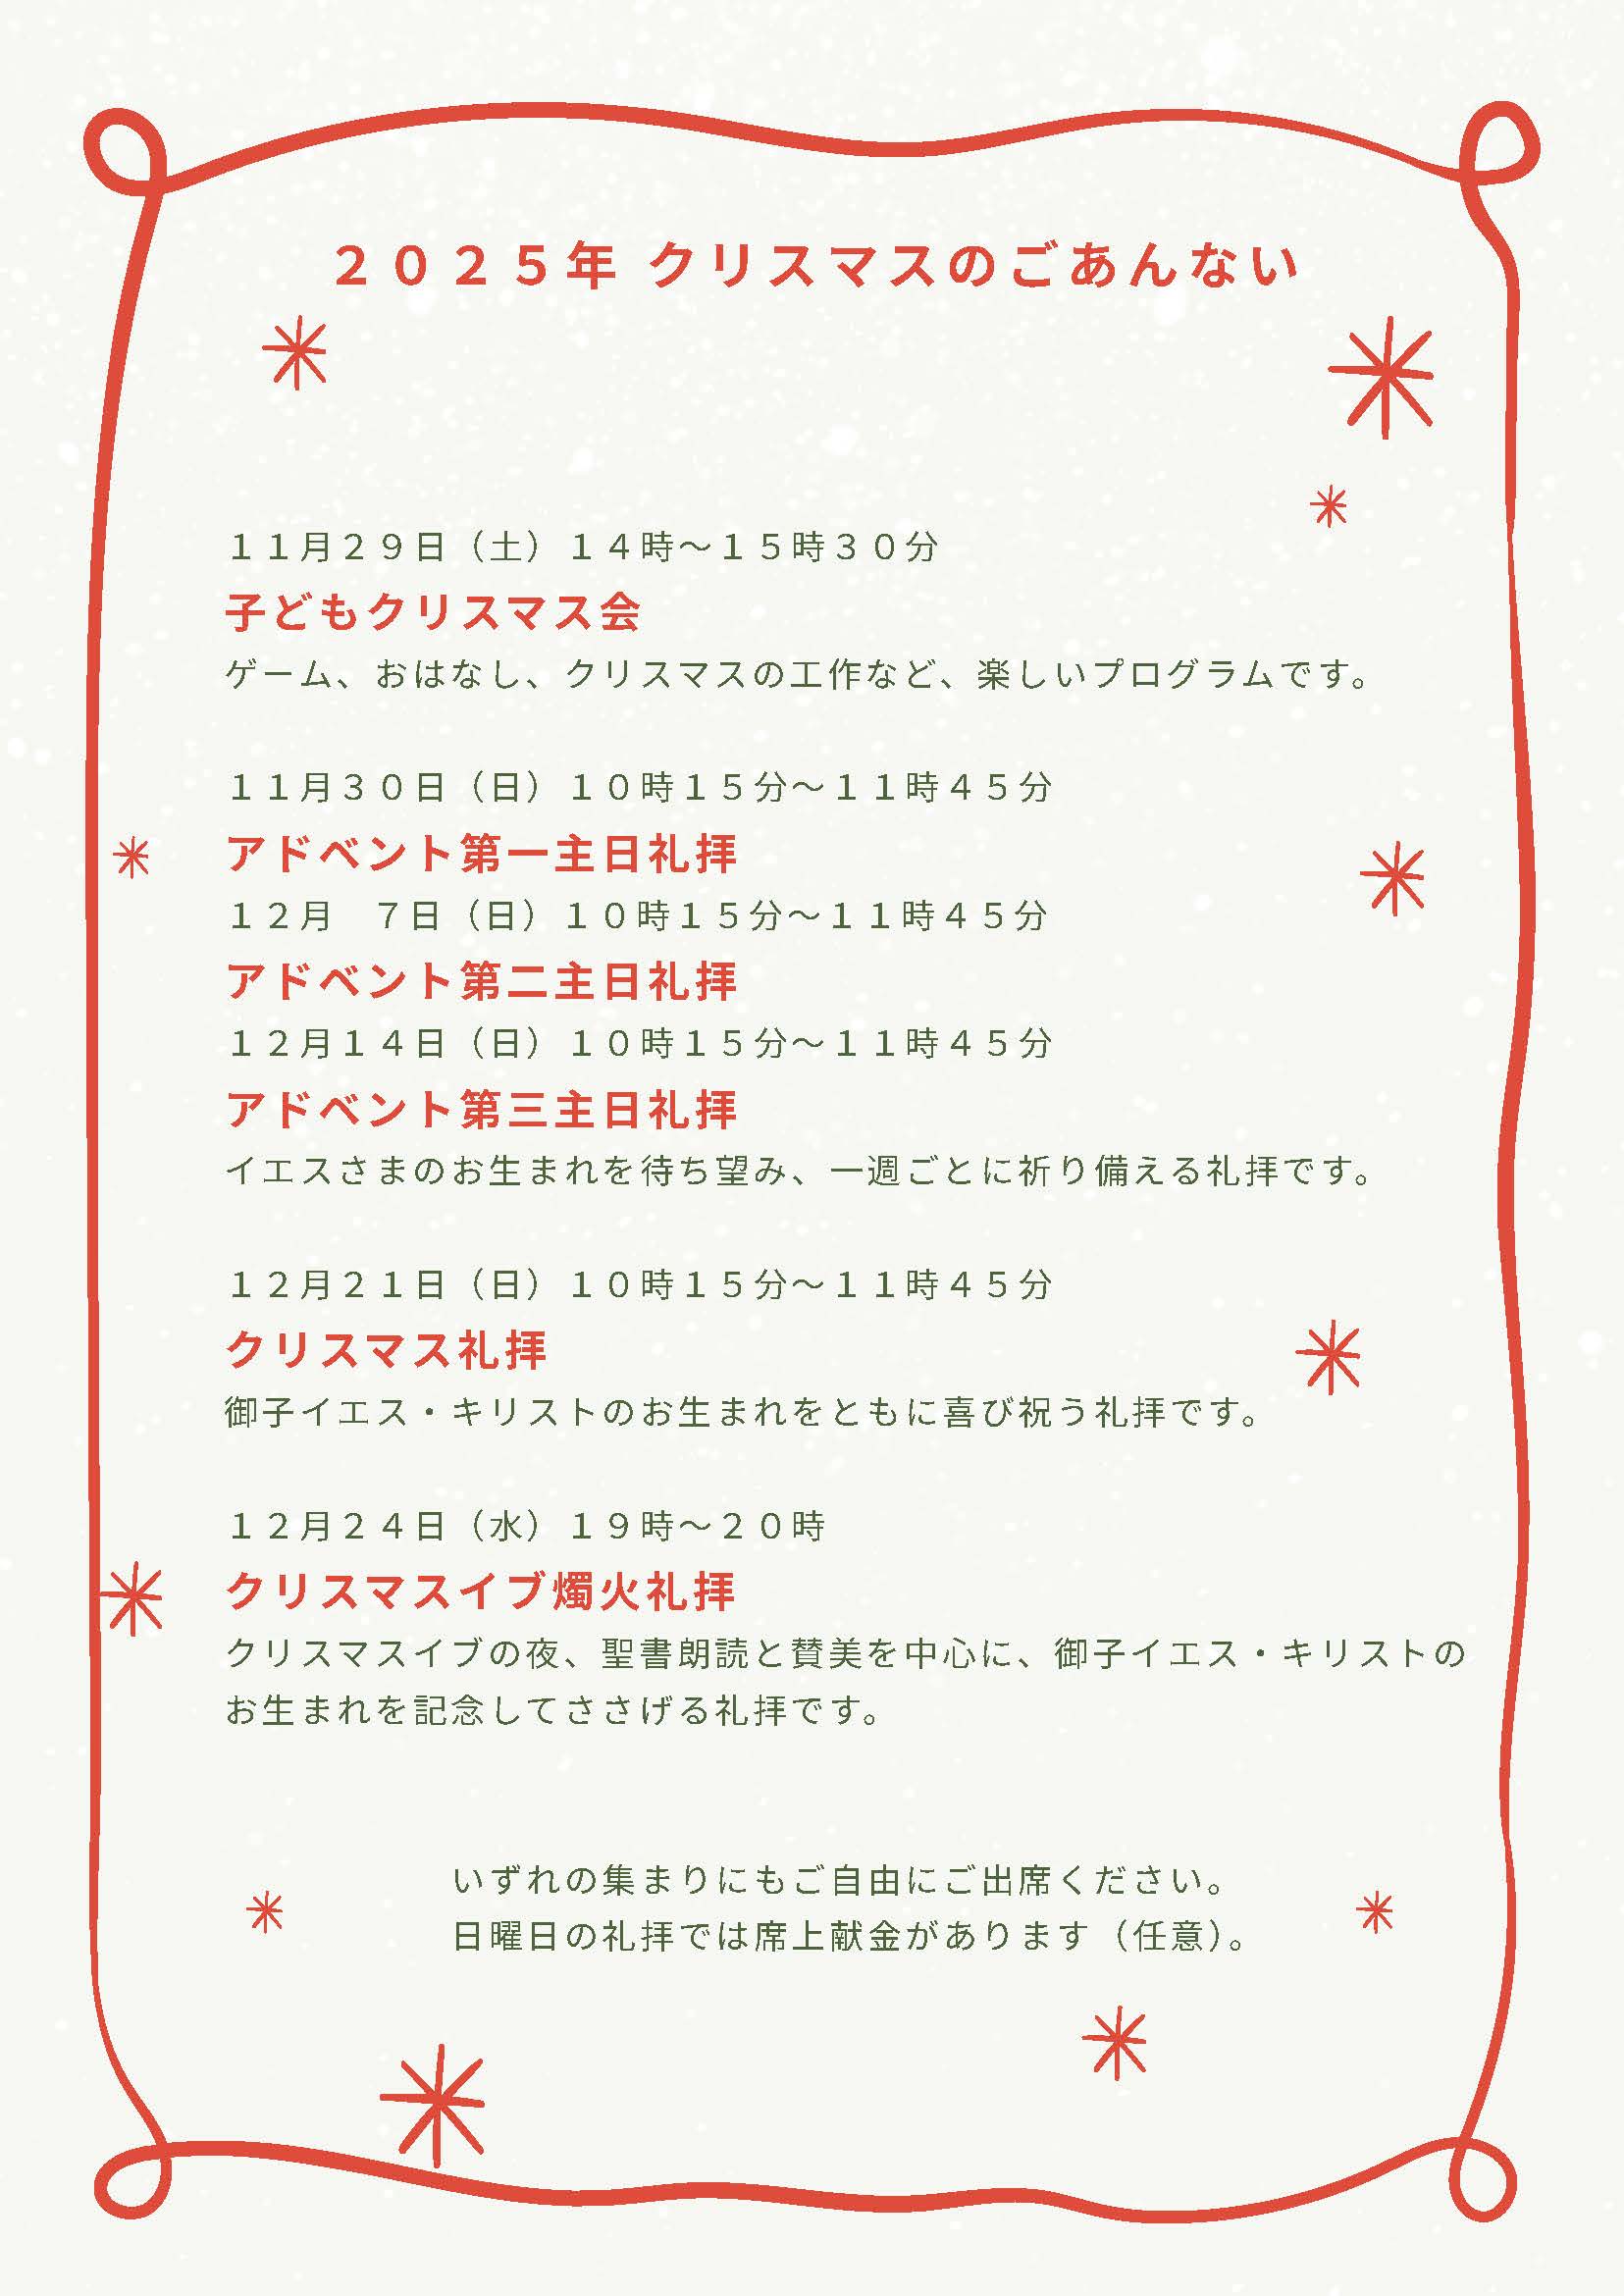 ２０２５年 クリスマスのごあんない
１１月２９日（土）１４時～１５時３０分
子どもクリスマス会
ゲーム、おはなし、クリスマスの工作など、楽しいプログラムです。
１１月３０日（日）１０時１５分～１１時４５分
アドベント第一主日礼拝
１２月　７日（日）１０時１５分～１１時４５分
アドベント第二主日礼拝
１２月１４日（日）１０時１５分～１１時４５分
アドベント第三主日礼拝
イエスさまのお生まれを待ち望み、一週ごとに祈り備える礼拝です。
１２月２１日（日）１０時１５分～１１時４５分
クリスマス礼拝
御子イエス・キリストのお生まれをともに喜び祝う礼拝です。
１２月２４日（水）１９時～２０時
クリスマスイブ燭火礼拝
クリスマスイブの夜、聖書朗読と賛美を中心に、御子イエス・キリストの
お生まれを記念してささげる礼拝です。
いずれの集まりにもご自由にご出席ください。
日曜日の礼拝では席上献金があります（任意）。